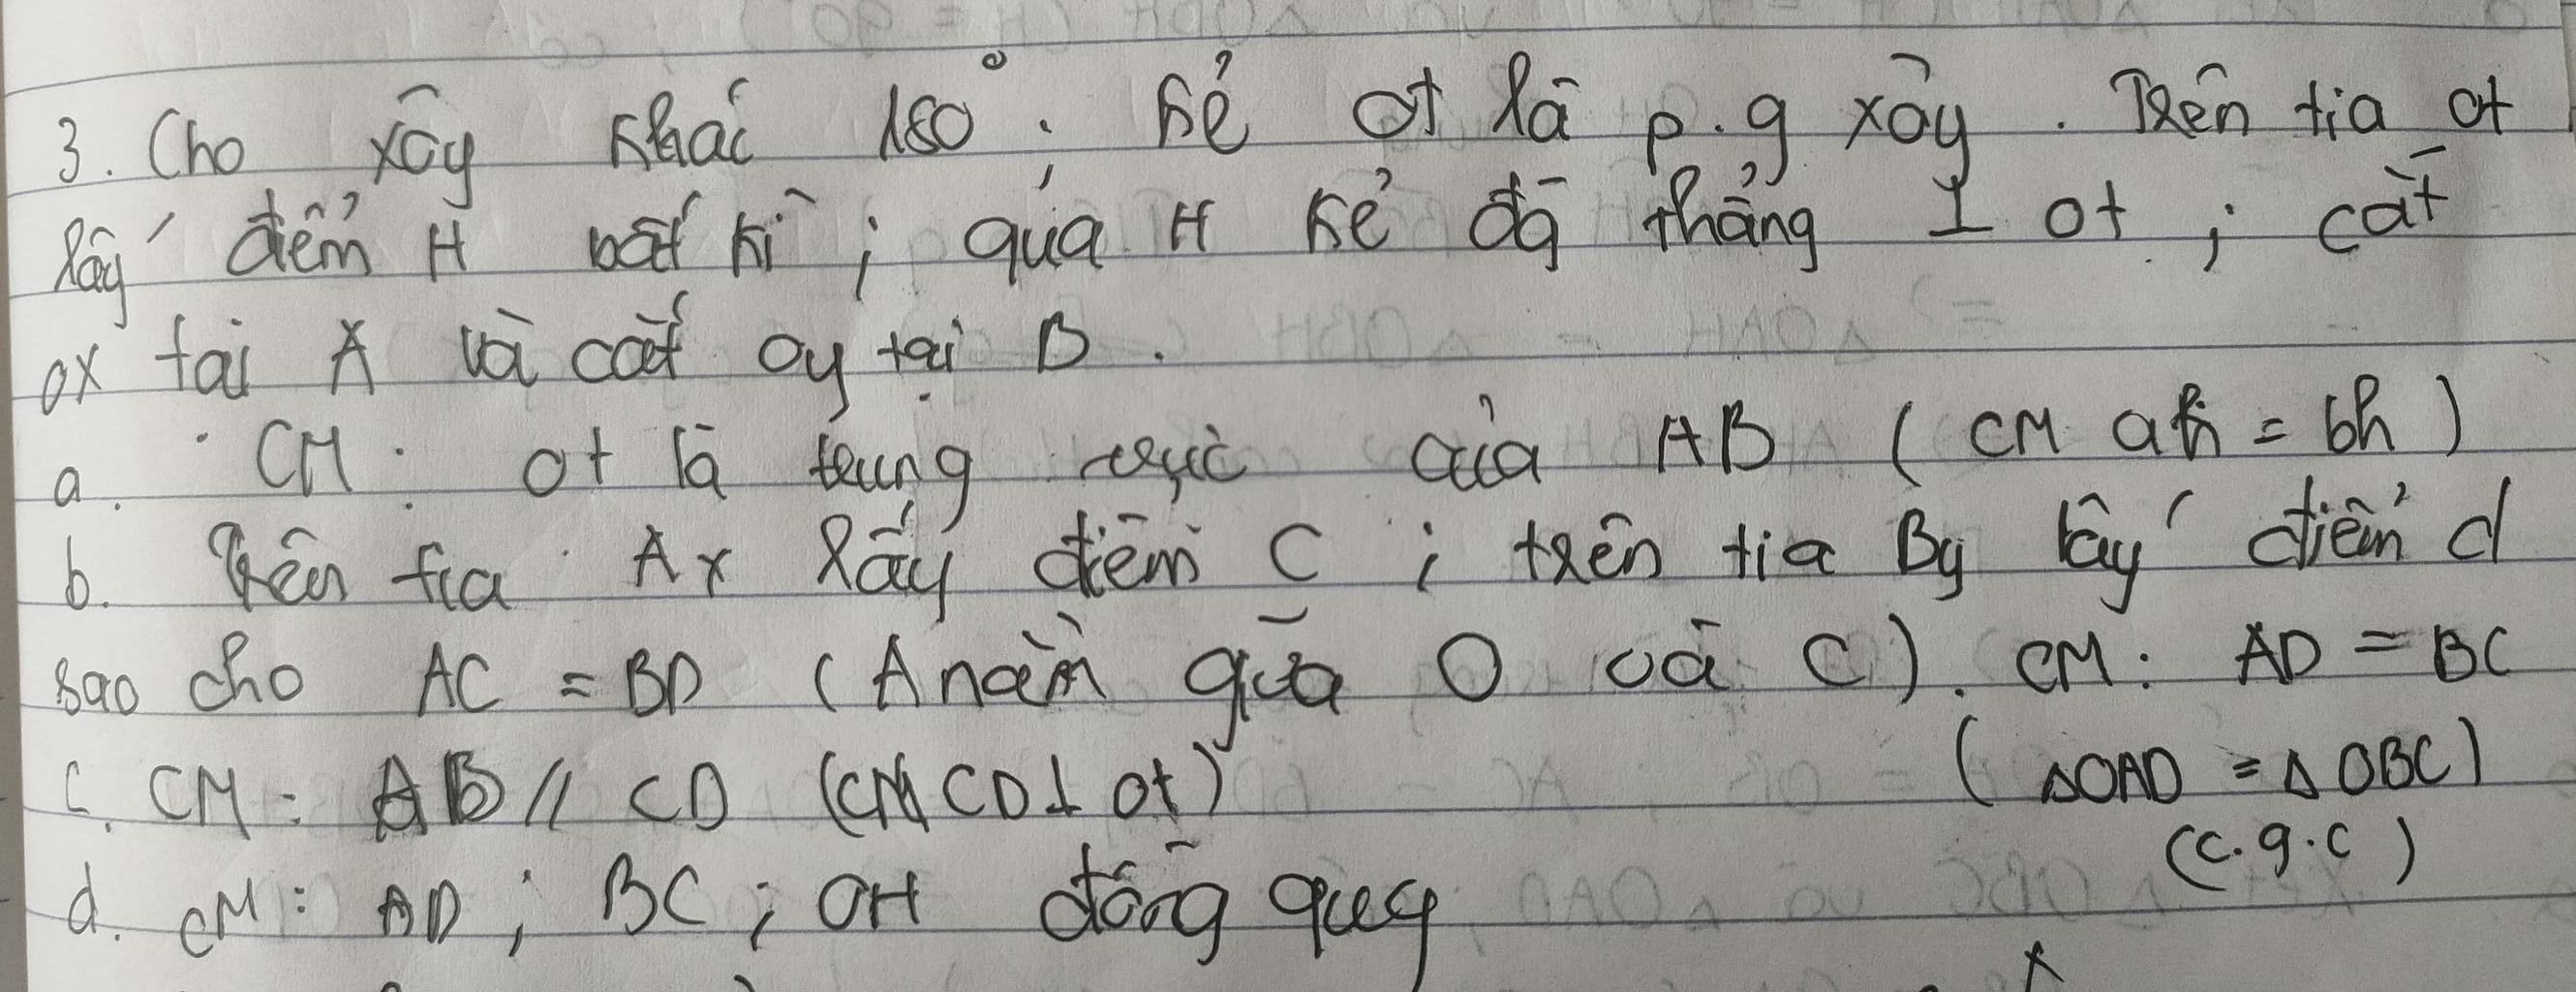 3. Cho xôy khác 180°; kẻ ot là p.g xôy. Trên tia ot
lấy điểm H bất kì; qua H kẻ đg thẳng ⊥ ot; cắt
ox tại A và cắt oy tại B.
a. CM: ot là trung trực của AB (CM ah = bh)
b. Trên tia Ax lấy điểm C; trên tia By lấy điểm d
sao cho AC = BD (A nằm giữa O và C). CM: AD = BC
(ΔOAD = ΔOBC)
c. CM: AB // CD (CM CD ⊥ ot)
(c.g.c)
d. CM: AD; BC; OH đồng quy